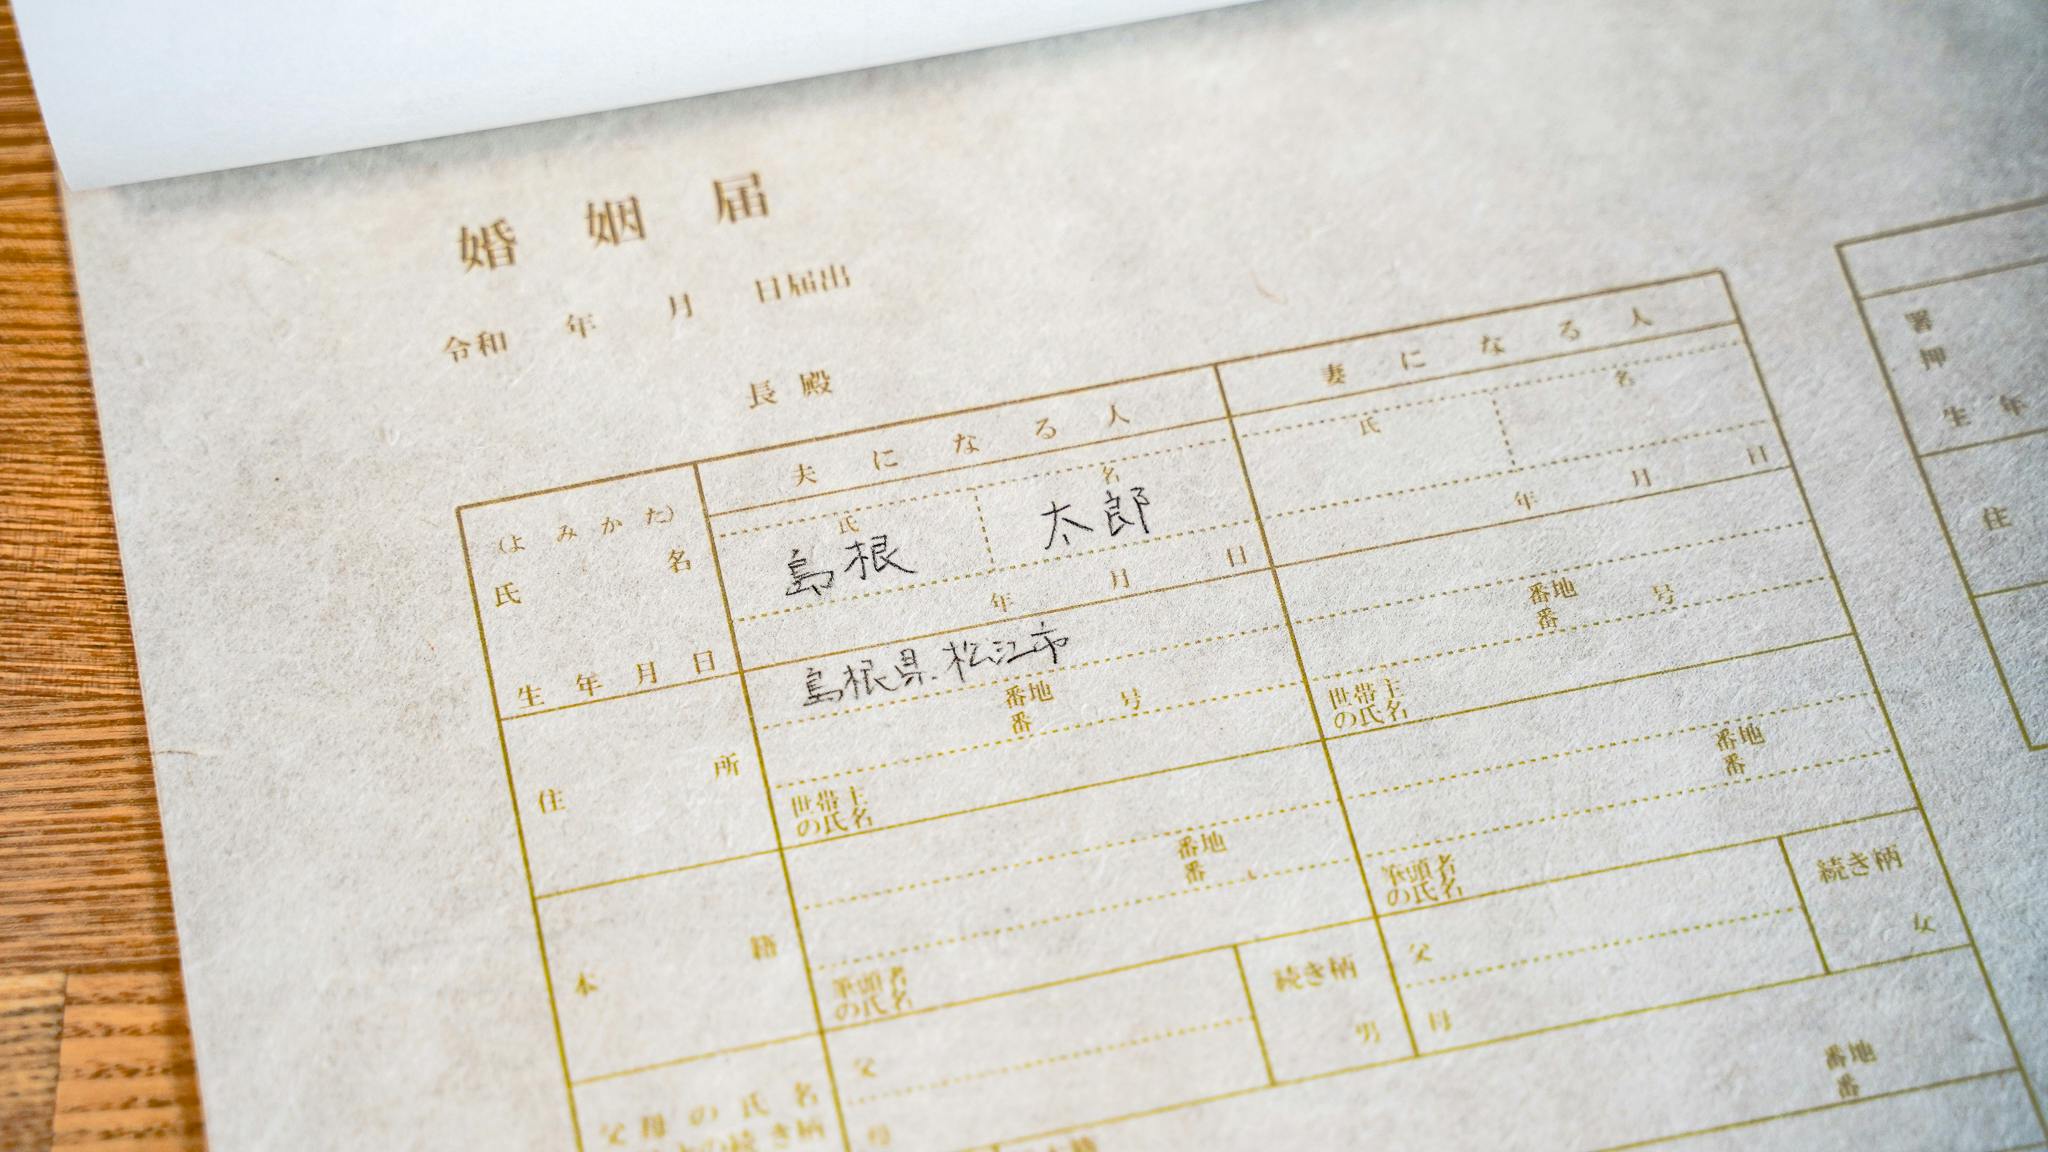 婚姻届
令和 年 月 日届出
長殿
夫になる人 妻になる人
(よみかた) 氏 名 氏 名
氏名 島根 太郎
生年月日 年 月 日 年 月 日
住所 島根県松江市
番地 番 号 番地 番 号
世帯主の氏名 世帯主の氏名
本籍 番地 番 番地 番
筆頭者の氏名 筆頭者の氏名
父母の氏名 父 続き柄 父 続き柄
母 男 母 女
番地
番
署
押
生年
住